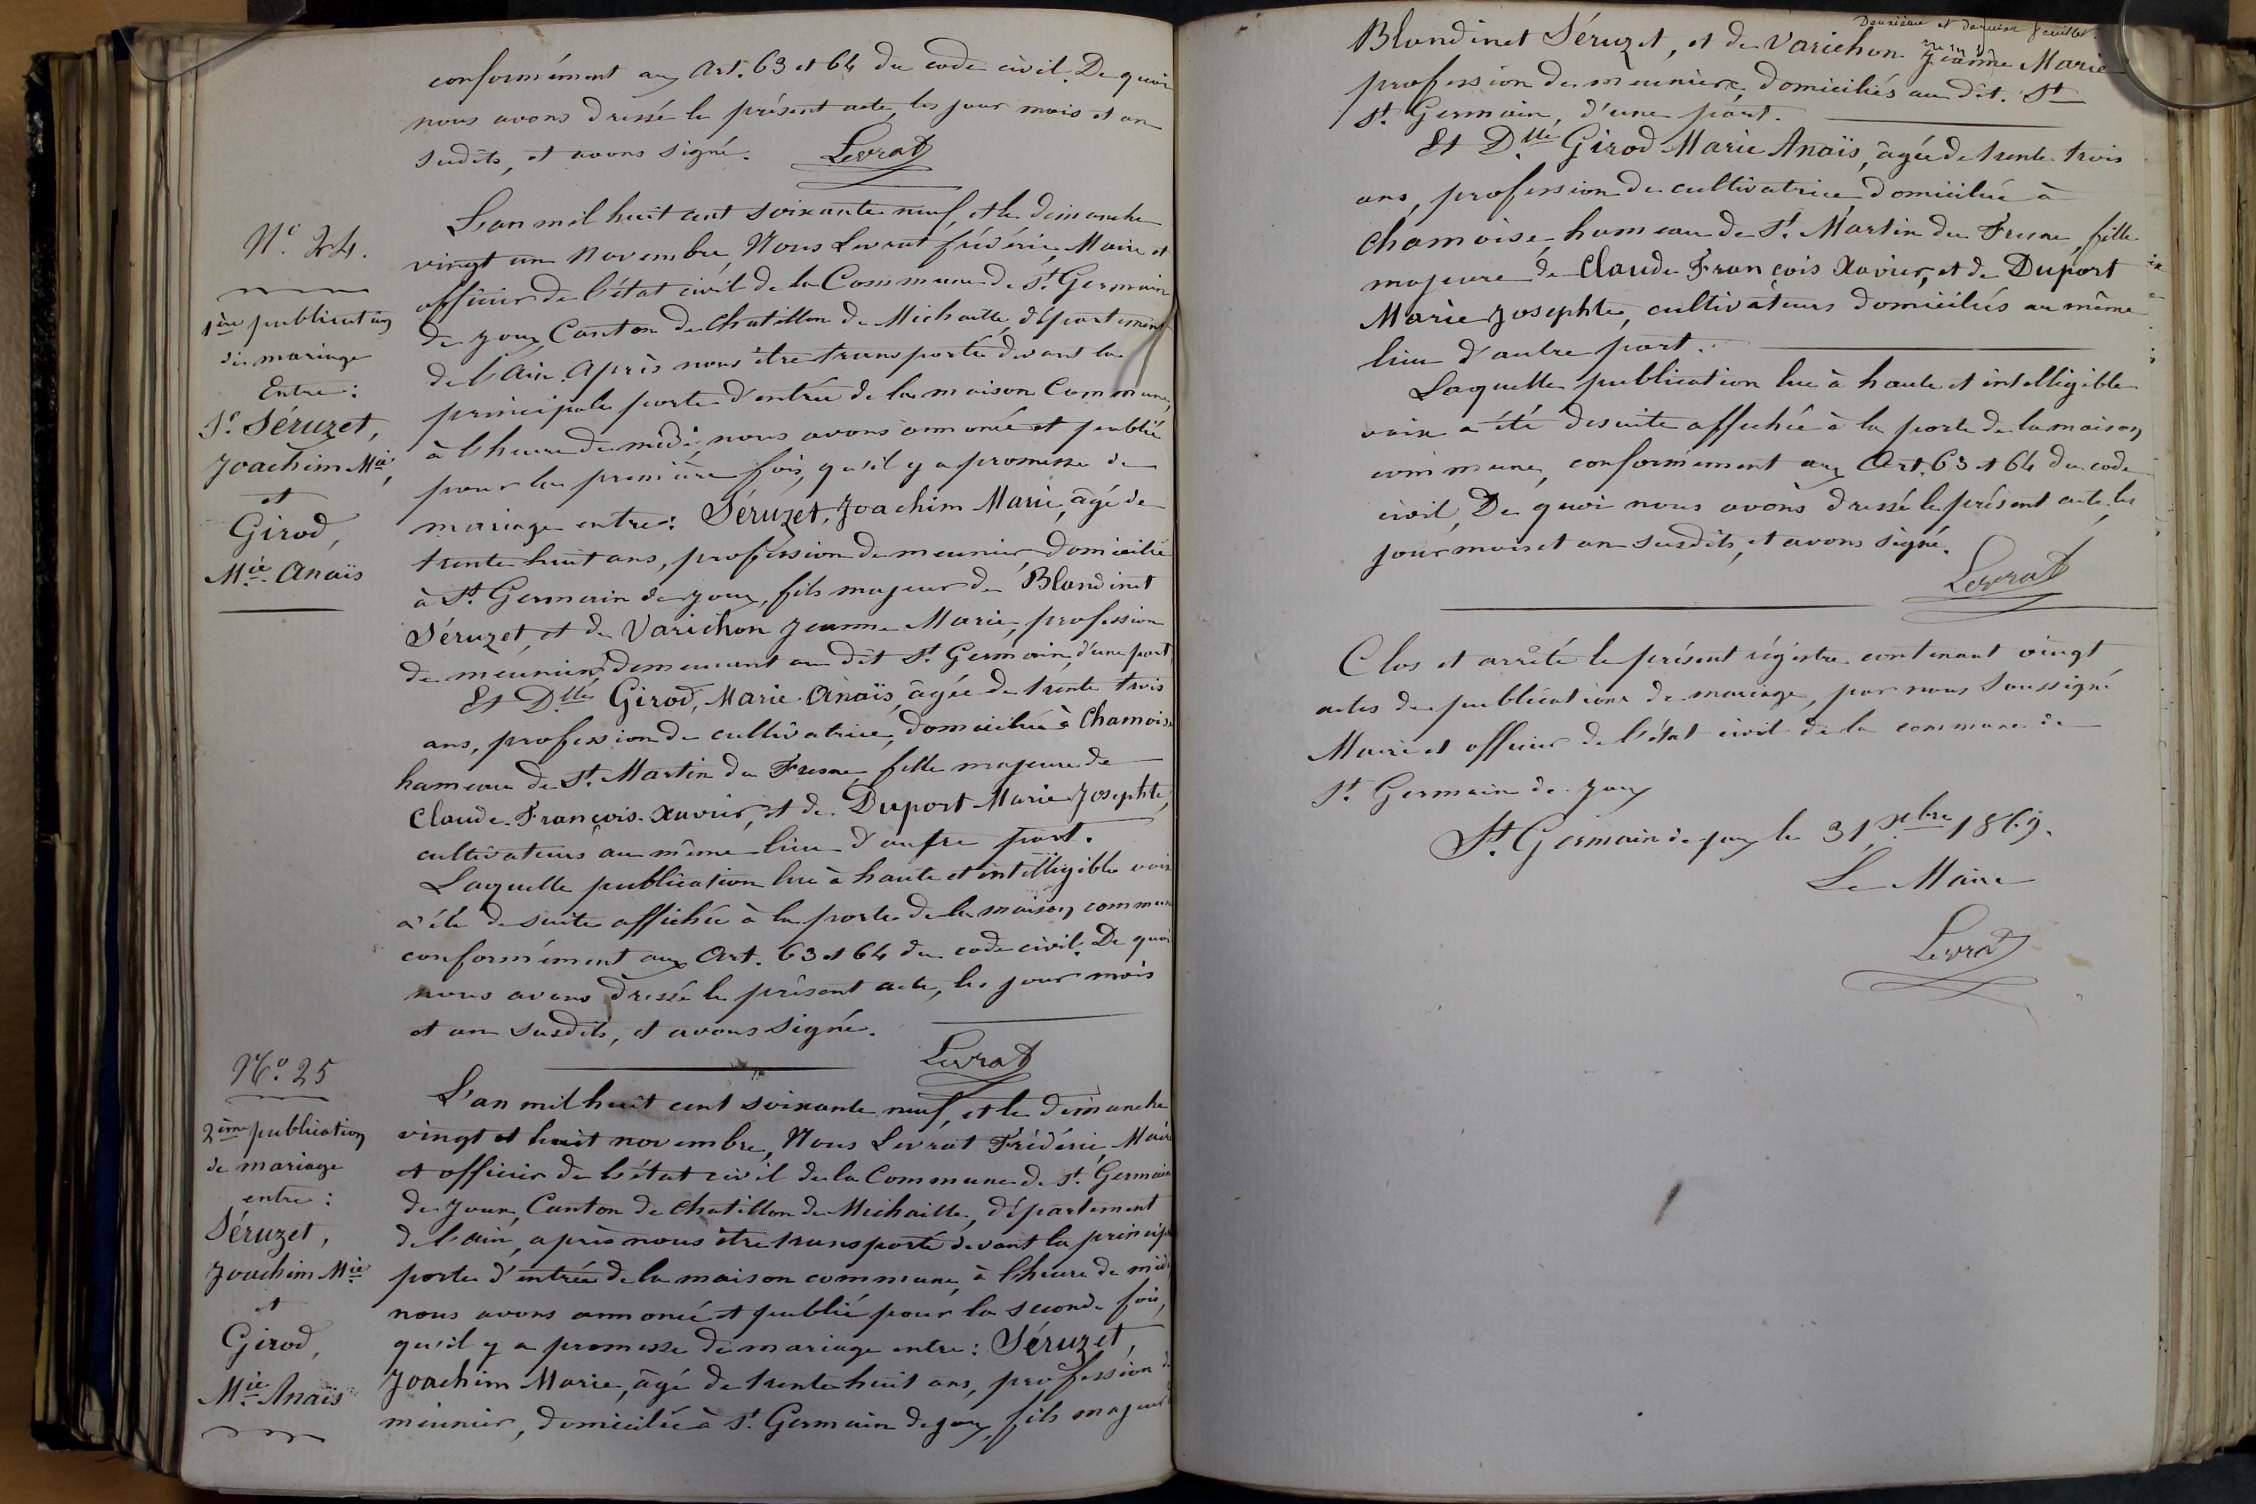 conformément aux Art. 63 et 64 du code civil. De quoi
nous avons dressé le présent acte, les jour mois et an
susdits, et avons signé. Levrat
N.o 24.
1ère publication
de mariage
Entre :
Sr. Séruzet,
Joachim Mie,
et
Girod,
Mie. Anaïs
L'an mil huit cent soixante neuf, et le dimanche
vingt un Novembre, Nous Levrat frédéric, Maire et
officier de l'état civil de la Commune de St. Germain
de Joux, Canton de Chatillon de Michaille, département
de l'Ain. Après nous être transporté devant la
principale porte d'entrée de la maison Commune,
à l'heure de midi, nous avons annoncé et publié
pour la première fois, qu'il y a promesse de
mariage entre : Séruzet, Joachim Marie, âgé de
trente huit ans, profession de meunier, domicilié
à St. Germain de Joux, fils majeur de Blandinet
Séruzet, et de Varichon Jeanne Marie, profession
de meuniers demeurant au dit St. Germain, d'une part
Et D.lle Girod, Marie Anaïs, âgée de trente trois
ans, profession de cultivatrice, domiciliée à Chamoise
hameau de St. Martin du Fresne, fille majeure de
Claude François Xavier, et de Duport Marie Josephte,
cultivateurs au même lieu d'autre part.
Laquelle publication lue à haute et intelligible voix
a été de suite affichée à la porte de la maison commune
conformément aux Art. 63 et 64 du code civil. De quoi
nous avons dressé le présent acte, les jour mois
et an susdits, et avons signé.
Levrat
N.o 25
2ème publication
de mariage
entre :
Séruzet,
Joachim Mie
et
Girod,
Mie. Anaïs
L'an mil huit cent soixante neuf, et le dimanche
vingt et huit novembre, Nous Levrat Frédéric, Maire
et officier de l'état civil de la Commune de St. Germain
de Joux, Canton de Chatillon de Michaille, département
de l'ain, après nous être transporté devant la principale
porte d'entrée de la maison commune, à l'heure de midi
nous avons annoncé et publié pour la seconde fois,
qu'il y a promesse de mariage entre : Séruzet,
Joachim Marie, âgé de trente huit ans, profession de
meunier, domicilié à St. Germain de Joux, fils majeur
Deuxième et dernier feuillet
Blandinet Séruzet, et de Varichon Jeanne Marie
profession de meuniers, domiciliés au dit. St
St. Germain, d'une part.
Et D.lle Girod Marie Anaïs, âgée de trente trois
ans, profession de cultivatrice domiciliée à
Chamoise, hameau de St. Martin du Fresne, fille
majeure de Claude François Xavier, et de Duport
Marie Josephte, cultivateurs domiciliés au même
lieu d'autre part.
Laquelle publication lue à haute et intelligible
voix a été desuite affichée à la porte de la maison
commune, conformément aux Art. 63 et 64 du code
civil, De quoi nous avons dressé le présent acte, les
jour mois et an susdits, et avons signé.
Levrat
Clos et arrêté le présent régistre contenant vingt
actes de publications de mariage, par nous soussigné
Maire et officier de l'état civil de la commune de
St. Germain de Joux
St. Germain de joux le 31 Xbre 1869.
Le Maire
Levrat